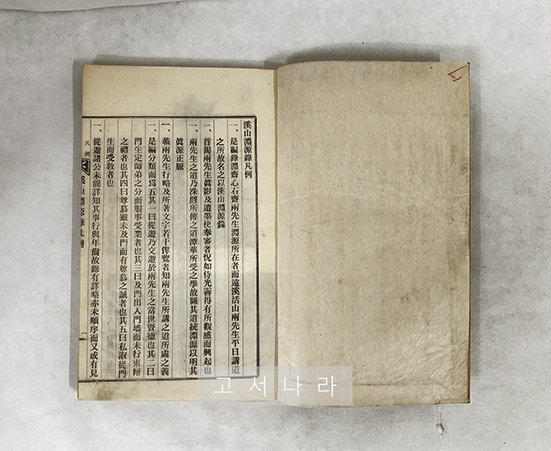 溪山淵源錄凡例
一、是編錄淵齋心石齋兩先生淵源所在者而遠溪活山兩先生平日講道
之所故名之以溪山淵源錄
一、首揭兩先生眞影及遺墨使奉審者怳如侍光霽得有所觀感而興起也
一、兩先生之道乃洙泗所傳之道潭華所受之學故圖其道統淵源以明其
眞源正脈
一、載兩先生行略及所著文字若干俾覽者知兩先生所講之道所處之義
一、是編分類而爲五其一曰從遊乃交遊於兩先生之當世賢德也其二曰
門生定師弟之分而服事受業者也其三曰及門出入門墻而未行束脩
之禮者也其四曰尊慕雖未及門而有尊慕之誠者也其五曰私淑從門
生而受敎者也
一、從遊諸公未能詳知其事行與年齒故錄有詳略亦未順序而又或有見
凡例
溪山淵源錄凡例
一
고서나라